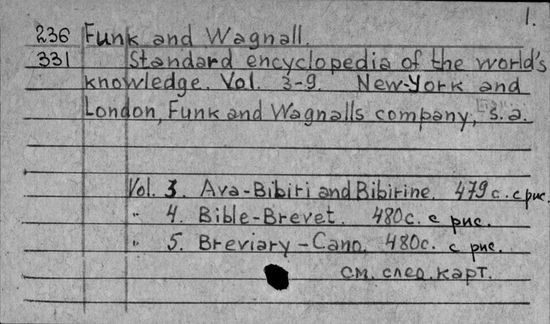 1.
236 Funk and Wagnall.
331 Standard encyclopedia of the world's
knowledge. Vol. 3-9. New-York and
London, Funk and Wagnalls company, s.a.
Vol. 3. Ava-Bibiri and Bibirine. 479 c. с рис.
" 4. Bible-Brevet. 480c. с рис.
" 5. Breviary-Cano. 480c. с рис.
см. след. карт.